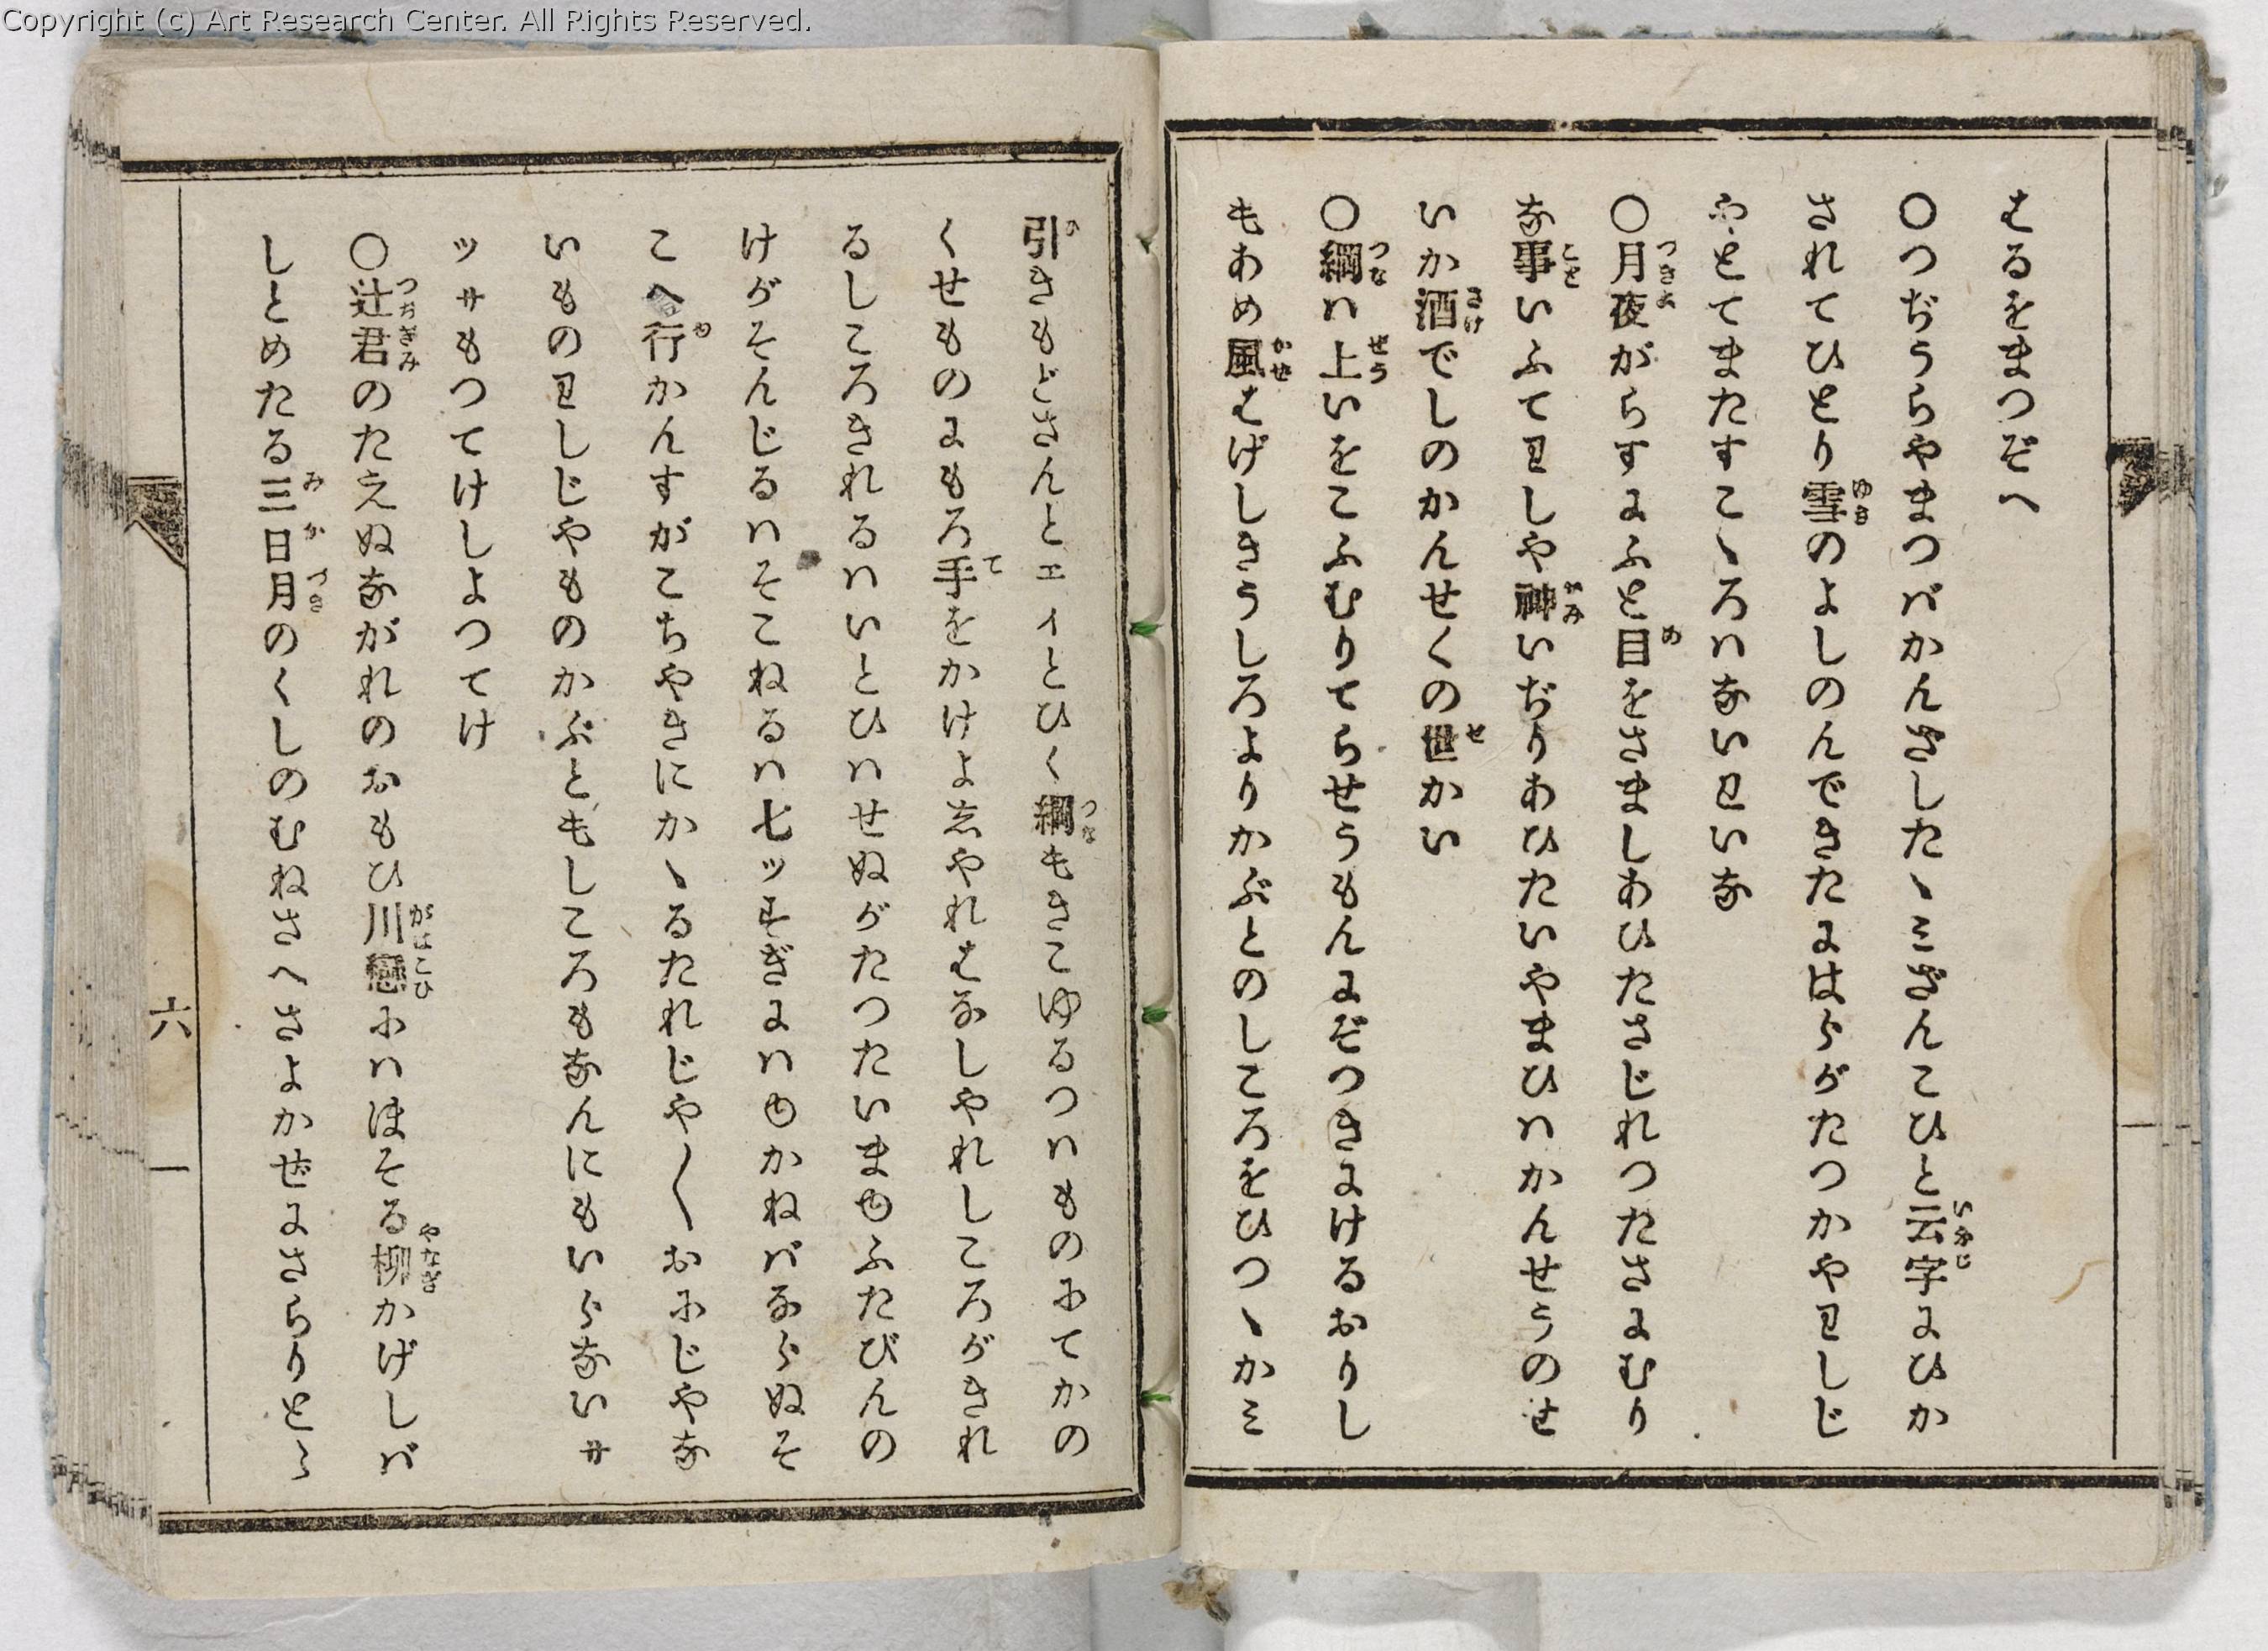 Copyright (c) Art Research Center. All Rights Reserved.
はるをまつぞへ
〇つぢうらやまつバかんざしたゝミざんこひと云字にひか
されてひとり雪のよしのんできたにはらがたつかやわしじ
やとてまたすこゝろハないわいな
〇月夜がらすにふと目をさましあひたさじれつたさにむり
な事いふてわしや神いぢりあひたいやまひハかんせうのせ
いか酒でしのかんせくの世かい
〇綱ハ上いをこふむりてらせうもんにぞつきにけるおりし
もあめ風はげしきうしろよりかぶとのしころをひつゝかミ
引きもどさんとエイとひく綱もきこゆるつハものにてかの
くせものにもろ手をかけよ志やれはなしやれしころがきれ
るしころきれるハいとひハせぬがたつたいまゆふたびんの
けがそんじるハそこねるハ七ッすぎにハゆかねバならぬそ
こへ行かんすがこちやきにかゝるたれじや〱おにじやな
いものわしじやものかぶともしころもなんにもいらないサ
ッサもつてけしよつてけ
〇辻君のたえぬながれのおもひ川戀にハほそる柳かげしバ
しとめたる三日月のくしのむねさへさよかぜにさらりとゝ
六
一